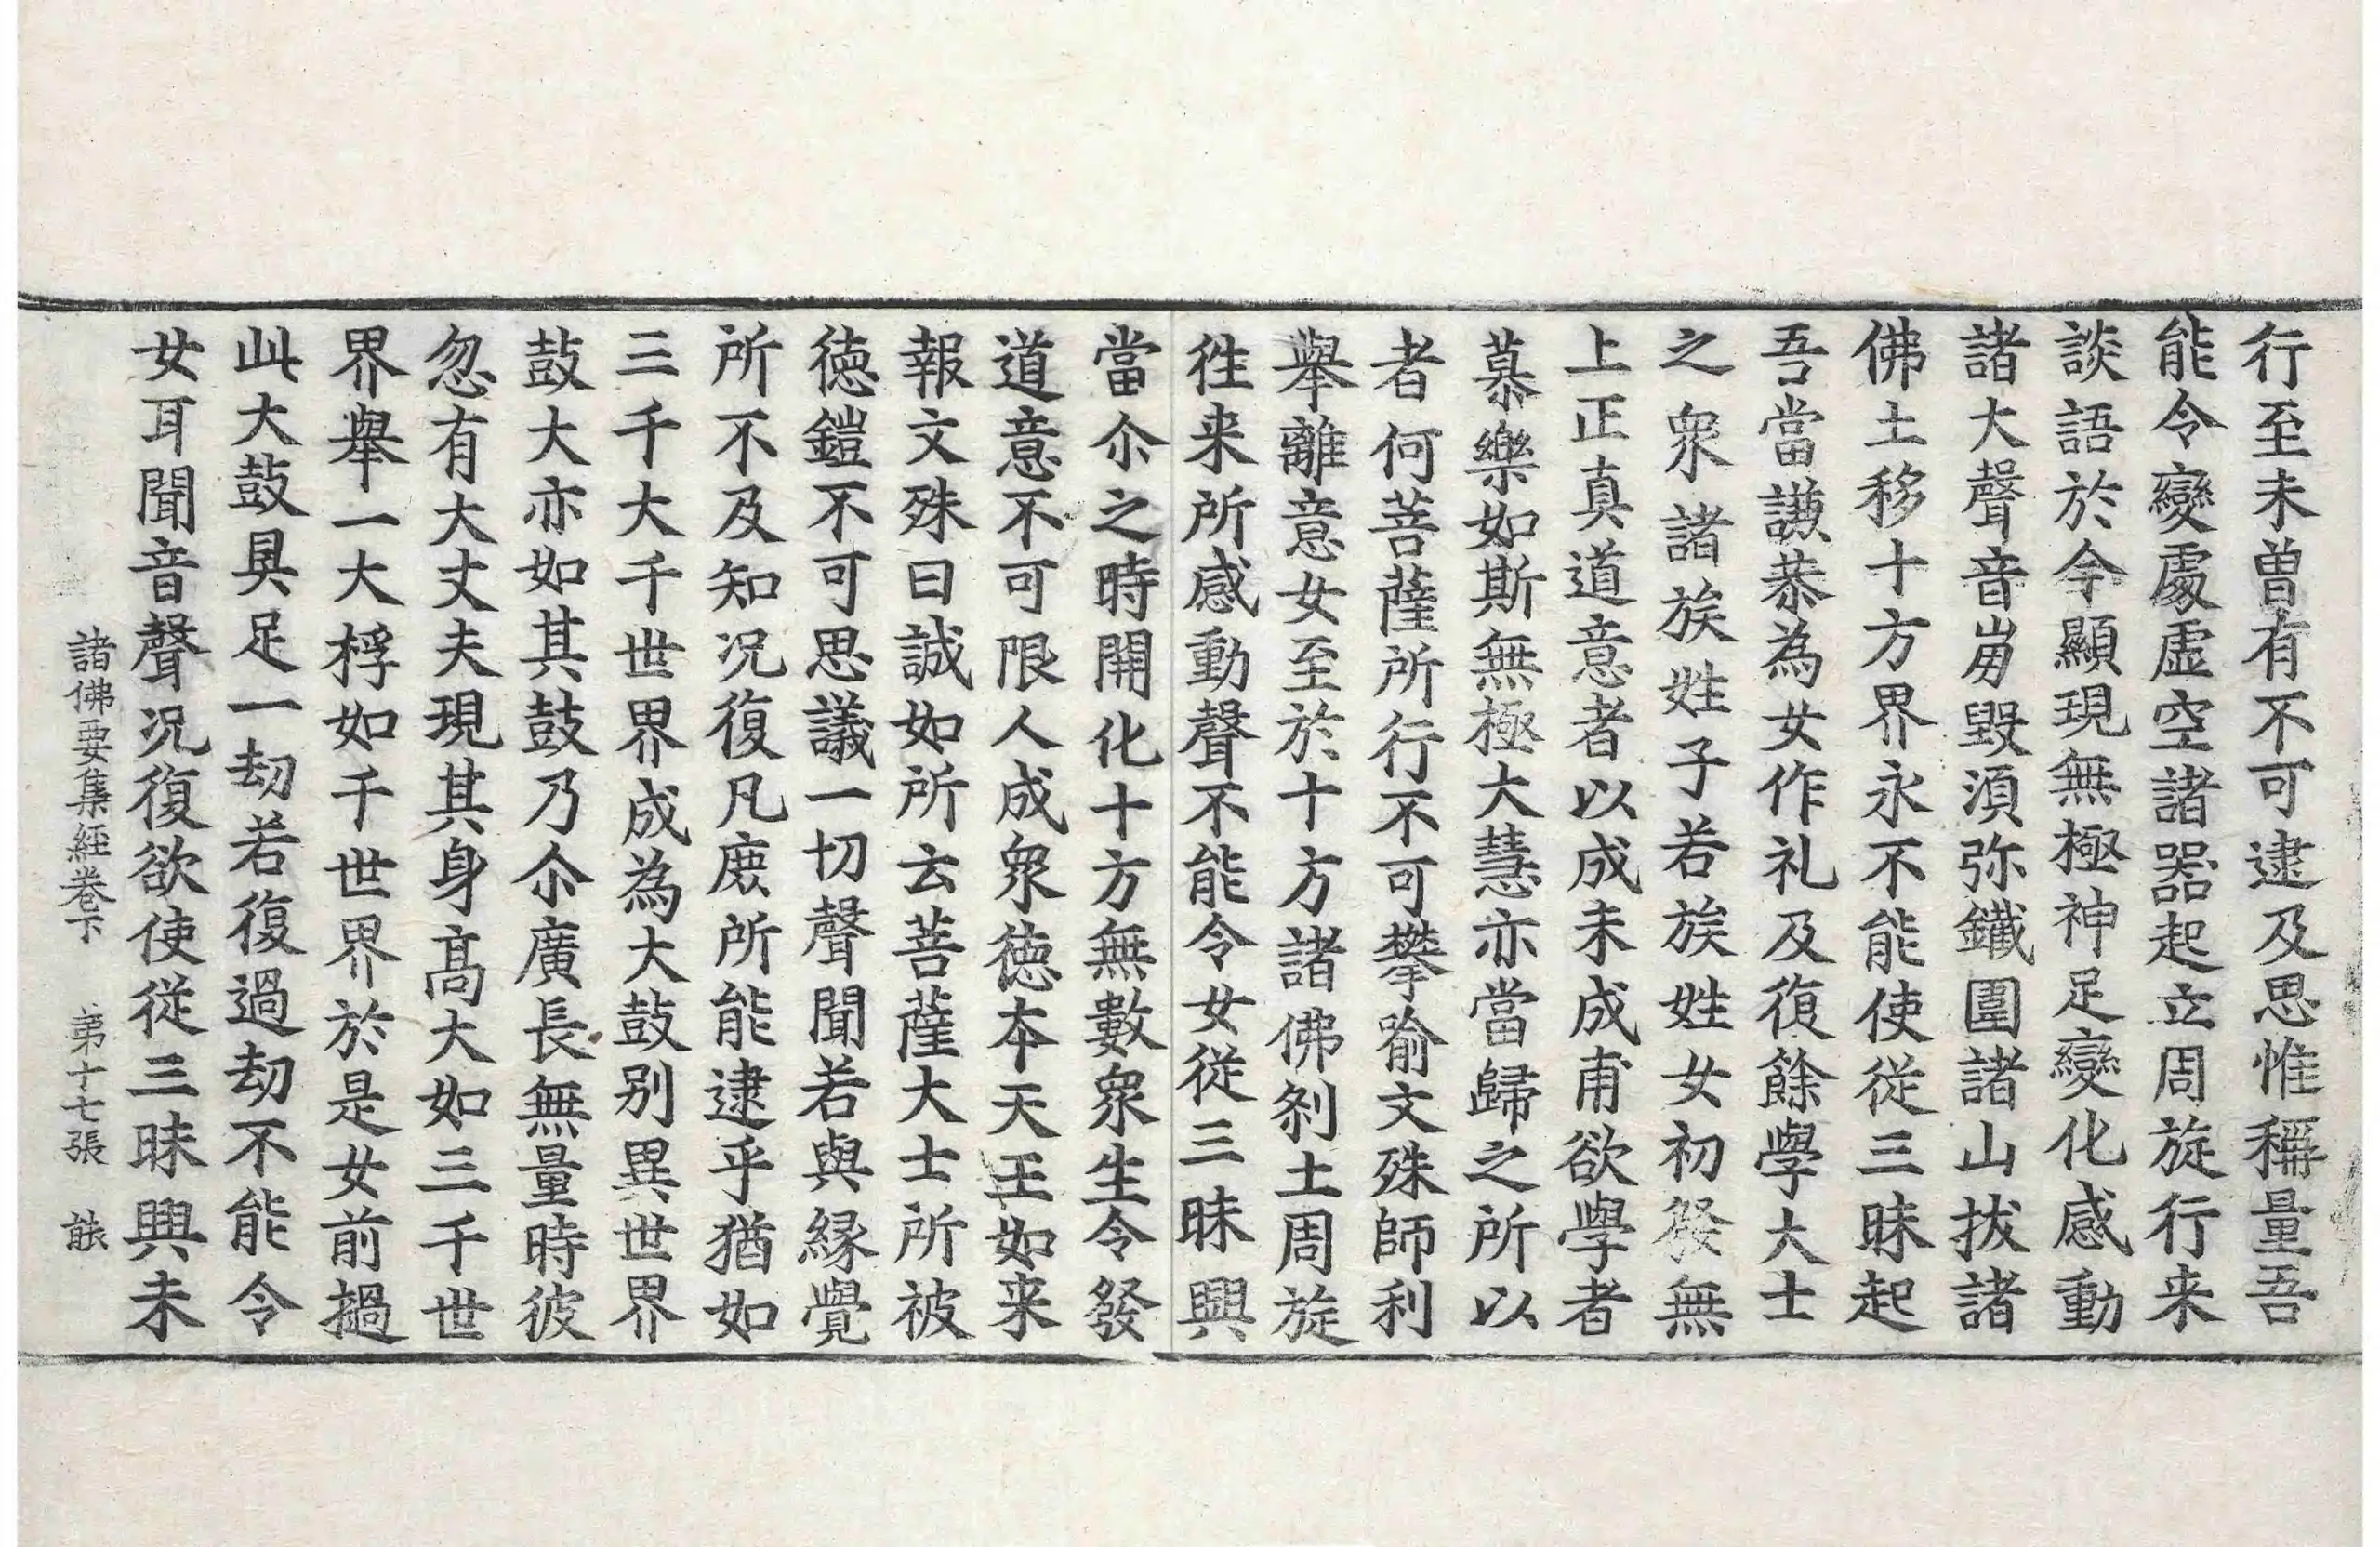 行至未曾有不可逮及思惟稱量吾
能令變處虛空諸器起立周旋行来
談語於今顯現無極神足變化感動
諸大聲音崩毀須弥鐵圍諸山拔諸
佛土移十方界永不能使從三昧起
吾當謙恭為女作礼及復餘學大士
之衆諸族姓子若族姓女初發無
上正真道意者以成未成甫欲學者
慕樂如斯無極大慧亦當歸之所以
者何菩薩所行不可攀喻文殊師利
舉離意女至於十方諸佛刹土周旋
往来所感動聲不能令女從三昧興
當尒之時開化十方無數衆生令發
道意不可限人成衆徳本天王如来
報文殊曰誠如所云菩薩大士所被
徳鎧不可思議一切聲聞若與縁覺
所不及知況復凡庶所能逮乎猶如
三千大千世界成為大鼓别異世界
鼓大亦如其鼓乃尒廣長無量時彼
忽有大丈夫現其身髙大如三千世
界舉一大桴如千世界於是女前撾
此大鼓具足一劫若復過劫不能令
女耳聞音聲況復欲使從三昧興未
諸佛要集經卷下 第十七張